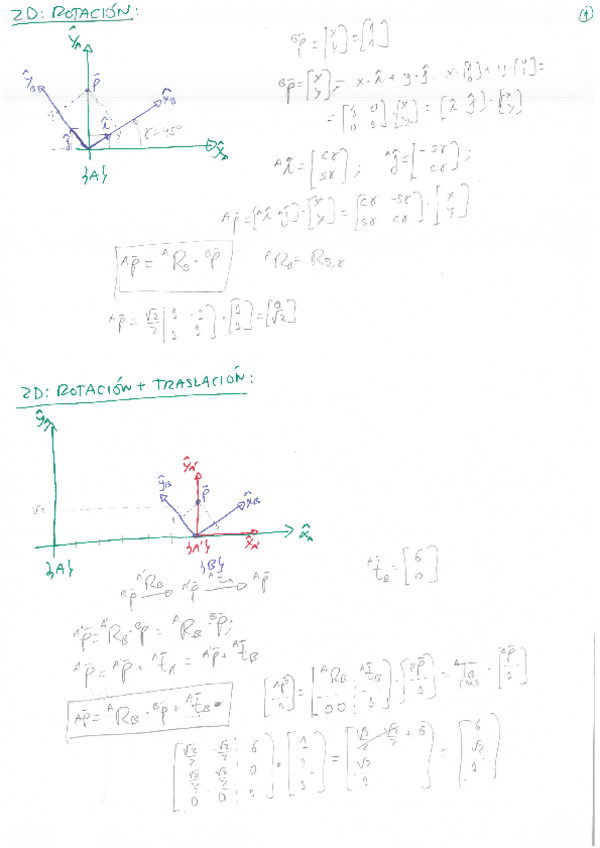 2D: ROTACIÓN:
1
ŷA
ŷB
p̄
x̂B
ĵ
î
γ=45°
x̂A
{A}
ᴮp̄ = [x y] = [1 1]
ᴮp̄ = [x y] = x·î + y·ĵ = x·[1 0] + y·[0 1] =
= [1 0; 0 1]·[x y] = [î ĵ]·[x y]
ᴬî = [cγ sγ]; ᴬĵ = [-sγ cγ];
ᴬp̄ = [ᴬî ᴬĵ]·[x y] = [cγ -sγ; sγ cγ]·[x y]
ᴬp̄ = ᴬR_B · ᴮp̄
ᴬR_B = R_{3,γ}
ᴬp̄ = √2/2 [1 -1; 1 1]·[1 1] = [0 √2]
2D: ROTACIÓN + TRASLACIÓN:
ŷA
ŷA'
ŷB
p̄
x̂B
√2
1
1
x̂A
{A}
{A'}
x̂A'
{B}
ᴬt̄_B = [6 0]
ᴮp̄ →(ᴬ'R_B) ᴬ'p̄ →(ᴬt̄_A') ᴬp̄
ᴬ'p̄ = ᴬ'R_B·ᴮp̄ = ᴬR_B·ᴮp̄;
ᴬp̄ = ᴬ'p̄ + ᴬt̄_A' = ᴬ'p̄ + ᴬt̄_B
ᴬp̄ = ᴬR_B · ᴮp̄ + ᴬt̄_B
[ᴬp̄; 1] = [ᴬR_B ᴬt̄_B; 0 0 1]·[ᴮp̄; 1] = ᴬT_B·[ᴮp̄; 1]
3x3
[√2/2 -√2/2 6; √2/2 √2/2 0; 0 0 1]·[1 1 1] = [√2/2 - √2/2 + 6; √2; 1] = [6; √2; 1]